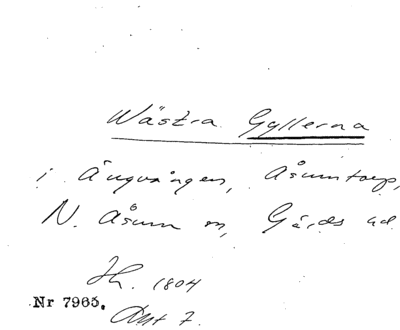 Wästra Gyllerna
i Ängvången, Åsumtorp,
N. Åsum sn, Gärds hd
1804
Nr 7965.
Akt 7.